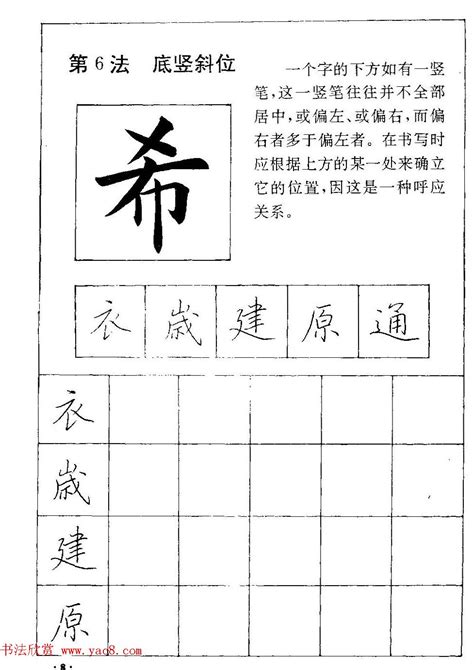 第6法 底竖斜位
一个字的下方如有一竖
笔,这一竖笔往往并不全部
居中,或偏左、或偏右,而偏
右者多于偏左者。在书写时
应根据上方的某一处来确立
它的位置,因这是一种呼应
关系。
希
衣 歲 建 原 通
衣
歲
建
原
书法欣赏 www.yac8.com
·8·